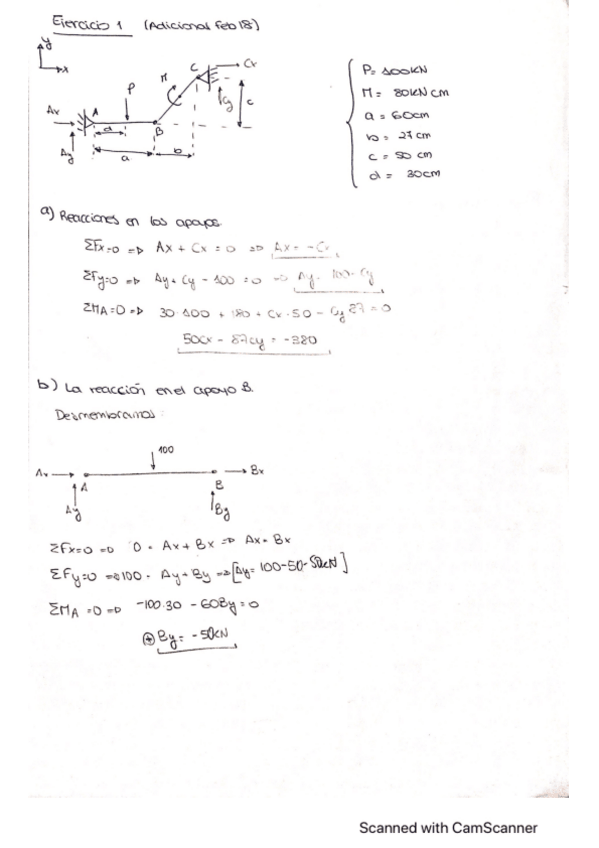 Ejercicio 1 (Adicional Feb 18)
y
x
Ax
Ay
A
P
M
B
C
Cx
Cy
c
d
a
b
P= 100KN
M= 80KN cm
a = 60cm
b = 27 cm
c = 50 cm
d = 30cm
a) Reacciones en los apoyos.
ΣFx=0 => Ax + Cx = 0 => Ax = -Cx
ΣFy=0 => Ay + Cy - 100 = 0 => Ay = 100 - Cy
ΣMA=0 => 30·100 + + Cx·50 - Cy = 0
50Cx - 87Cy =
b) La reacción en el apoyo B.
Desmembramos:
100
Ax
Bx
A
B
Ay
By
ΣFx=0 => 0 = Ax + Bx => Ax = Bx
ΣFy=0 => 100 = Ay + By => [Ay = 100-50=50kN]
ΣMA =0 => -100·30 - 60By = 0
(+) By = -50KN
Scanned with CamScanner